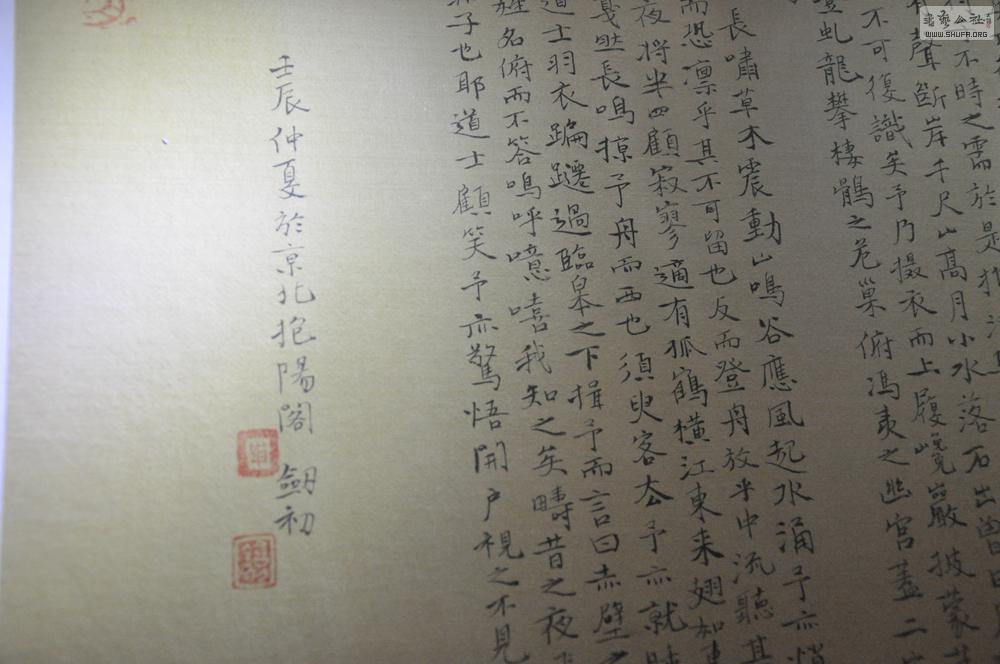 書藝公社
WWW.SHUFA.ORG
不時之需於是
聲斷岸千尺山高月小水落石出曾日
不可復識矣予乃攝衣而上履巉巖披蒙
登虬龍攀棲鶻之危巢俯馮夷之幽宮蓋二
長嘯草木震動山鳴谷應風起水涌予亦悄
而恐凜乎其不可留也反而登舟放乎中流聽其
夜將半四顧寂寥適有孤鶴橫江東來翅如車
戛然長鳴掠予舟而西也須臾客去予亦就睡
道士羽衣蹁躚過臨皋之下揖予而言曰赤壁之
姓名俯而不答嗚呼噫嘻我知之矣疇昔之夜
子也耶道士顧笑予亦驚悟開戶視之不見
壬辰仲夏於京北抱陽閣 劍初